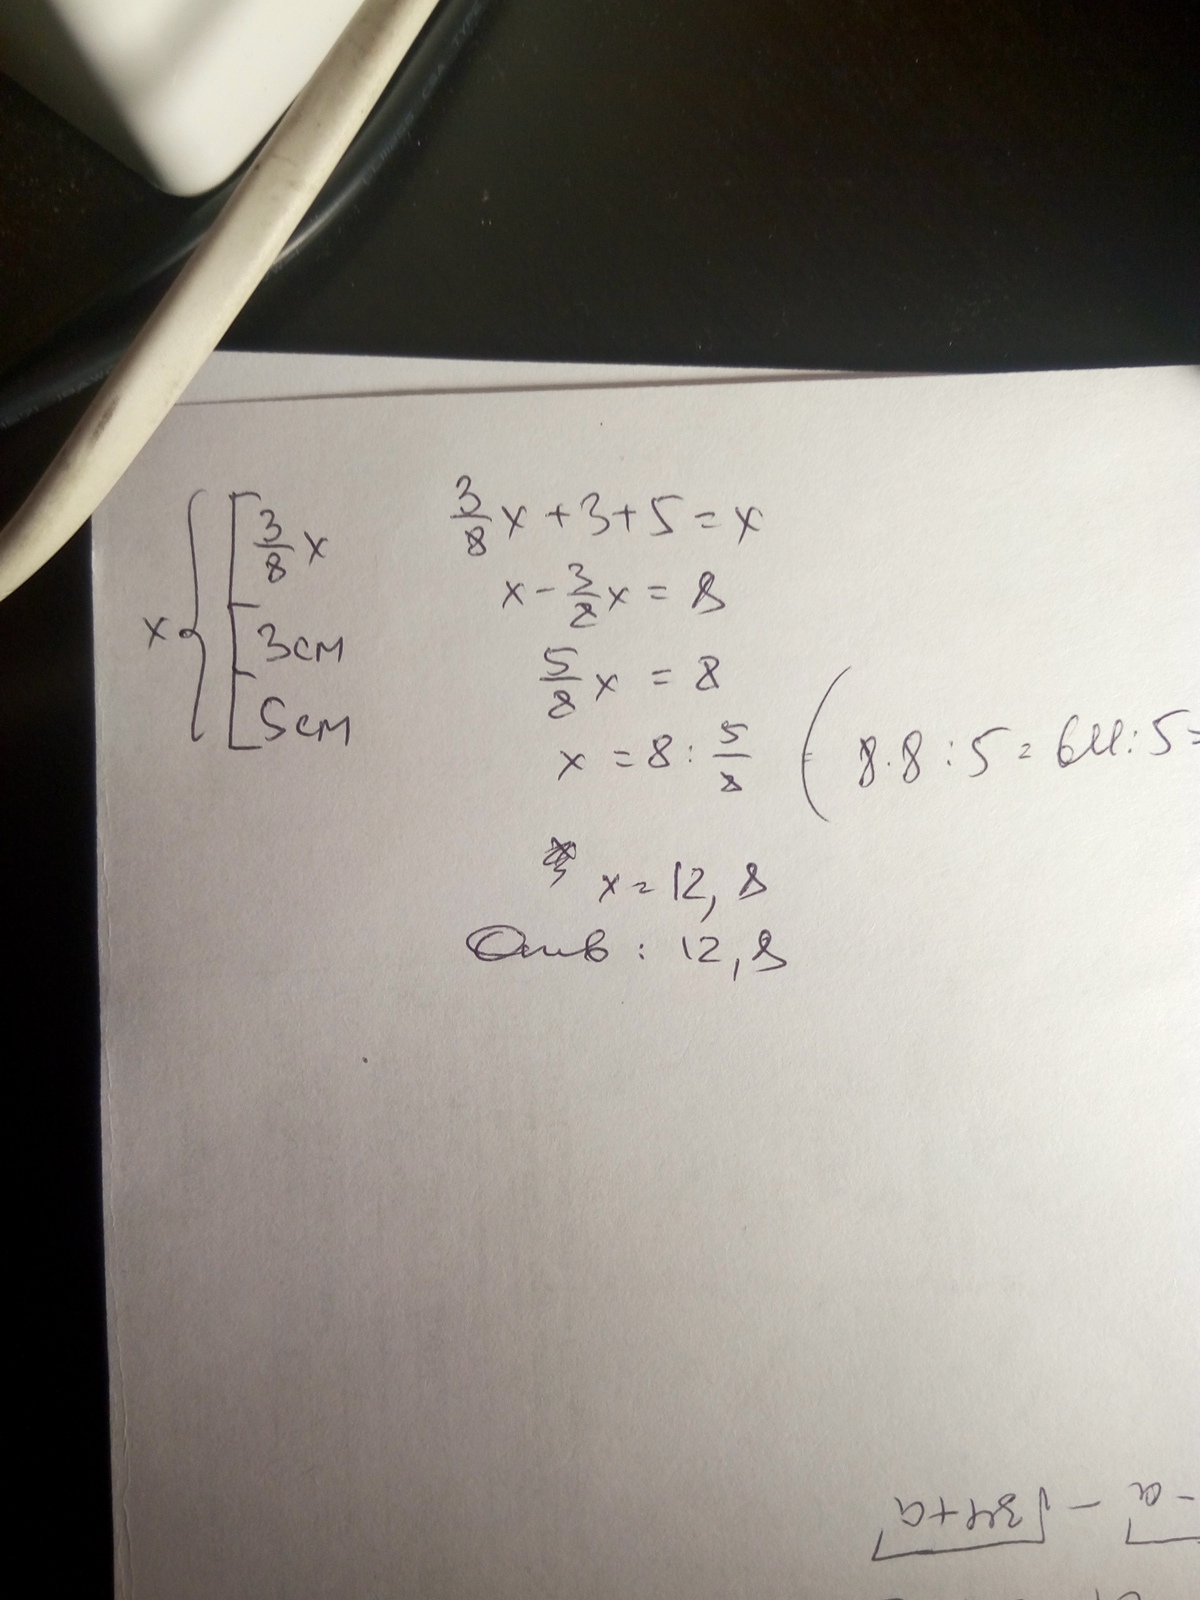 x { 3/8 x
3см
5см
3/8 x + 3 + 5 = x
x - 3/8 x = 8
5/8 x = 8
x = 8 : 5/8 ( 8 · 8 : 5 = 64 : 5 =
x = 12,8
Отв : 12,8
√34+a -